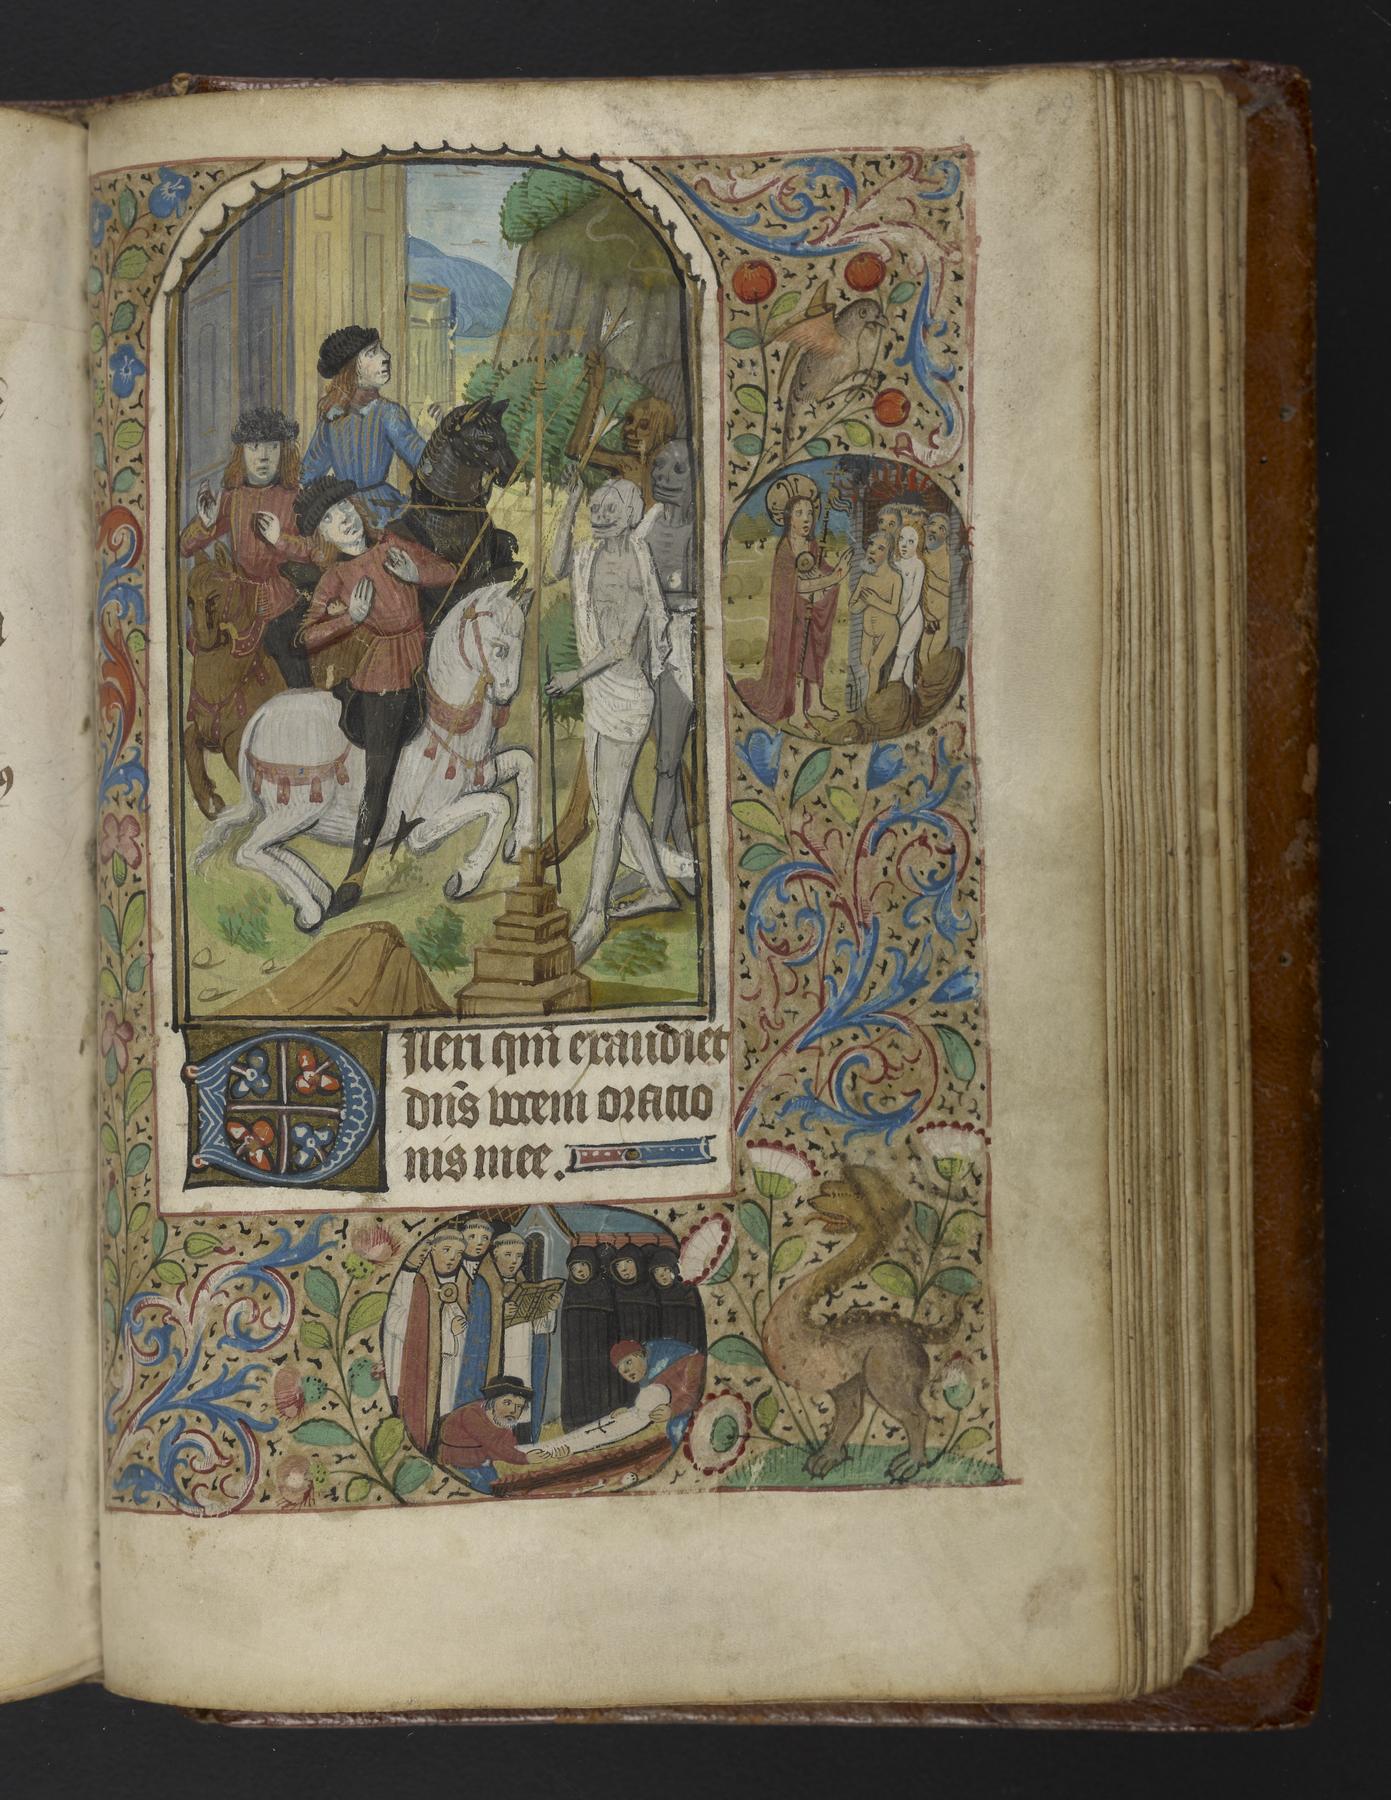 Dileri qm̄ exaudiet
dn̄s vocem oratio
nis mee.